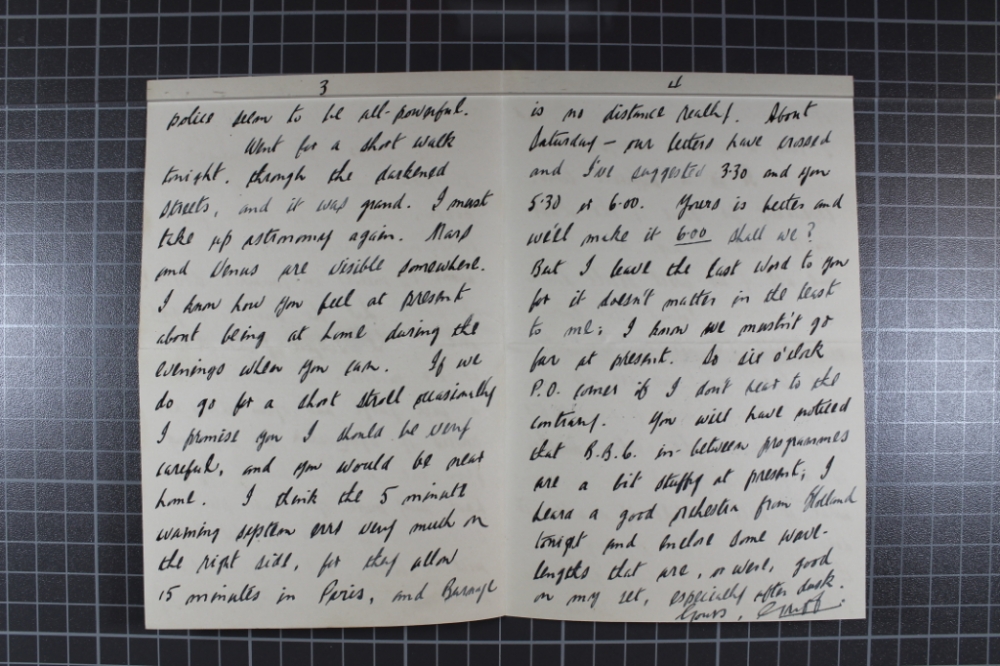 3
police seem to be all-powerful.
Went for a short walk
tonight, through the darkened
streets, and it was grand. I must
take up astronomy again. Mars
and Venus are visible somewhere.
I know how you feel at present
about being at home during the
evenings when you can. If we
do go for a short stroll occasionally
I promise you I should be very
careful, and you would be near
home. I think the 5 minute
warning system errs very much on
the right side, for they allow
15 minutes in Paris, and
4
is no distance really. About
Saturday – our letters have crossed
and I've suggested 3.30 and you
5.30 or 6.00. Yours is better and
we'll make it 6.00 shall we?
But I leave the last word to you
for it doesn't matter in the least
to me; I know we mustn't go
far at present. So six o'clock
P.O. corner if I don't hear to the
contrary. You will have noticed
that B.B.C. in-between programmes
are a bit stuffy at present; I
heard a good orchestra from Holland
tonight and enclose some wave-
lengths that are, or were, good
on my set, especially after dark.
Yours,